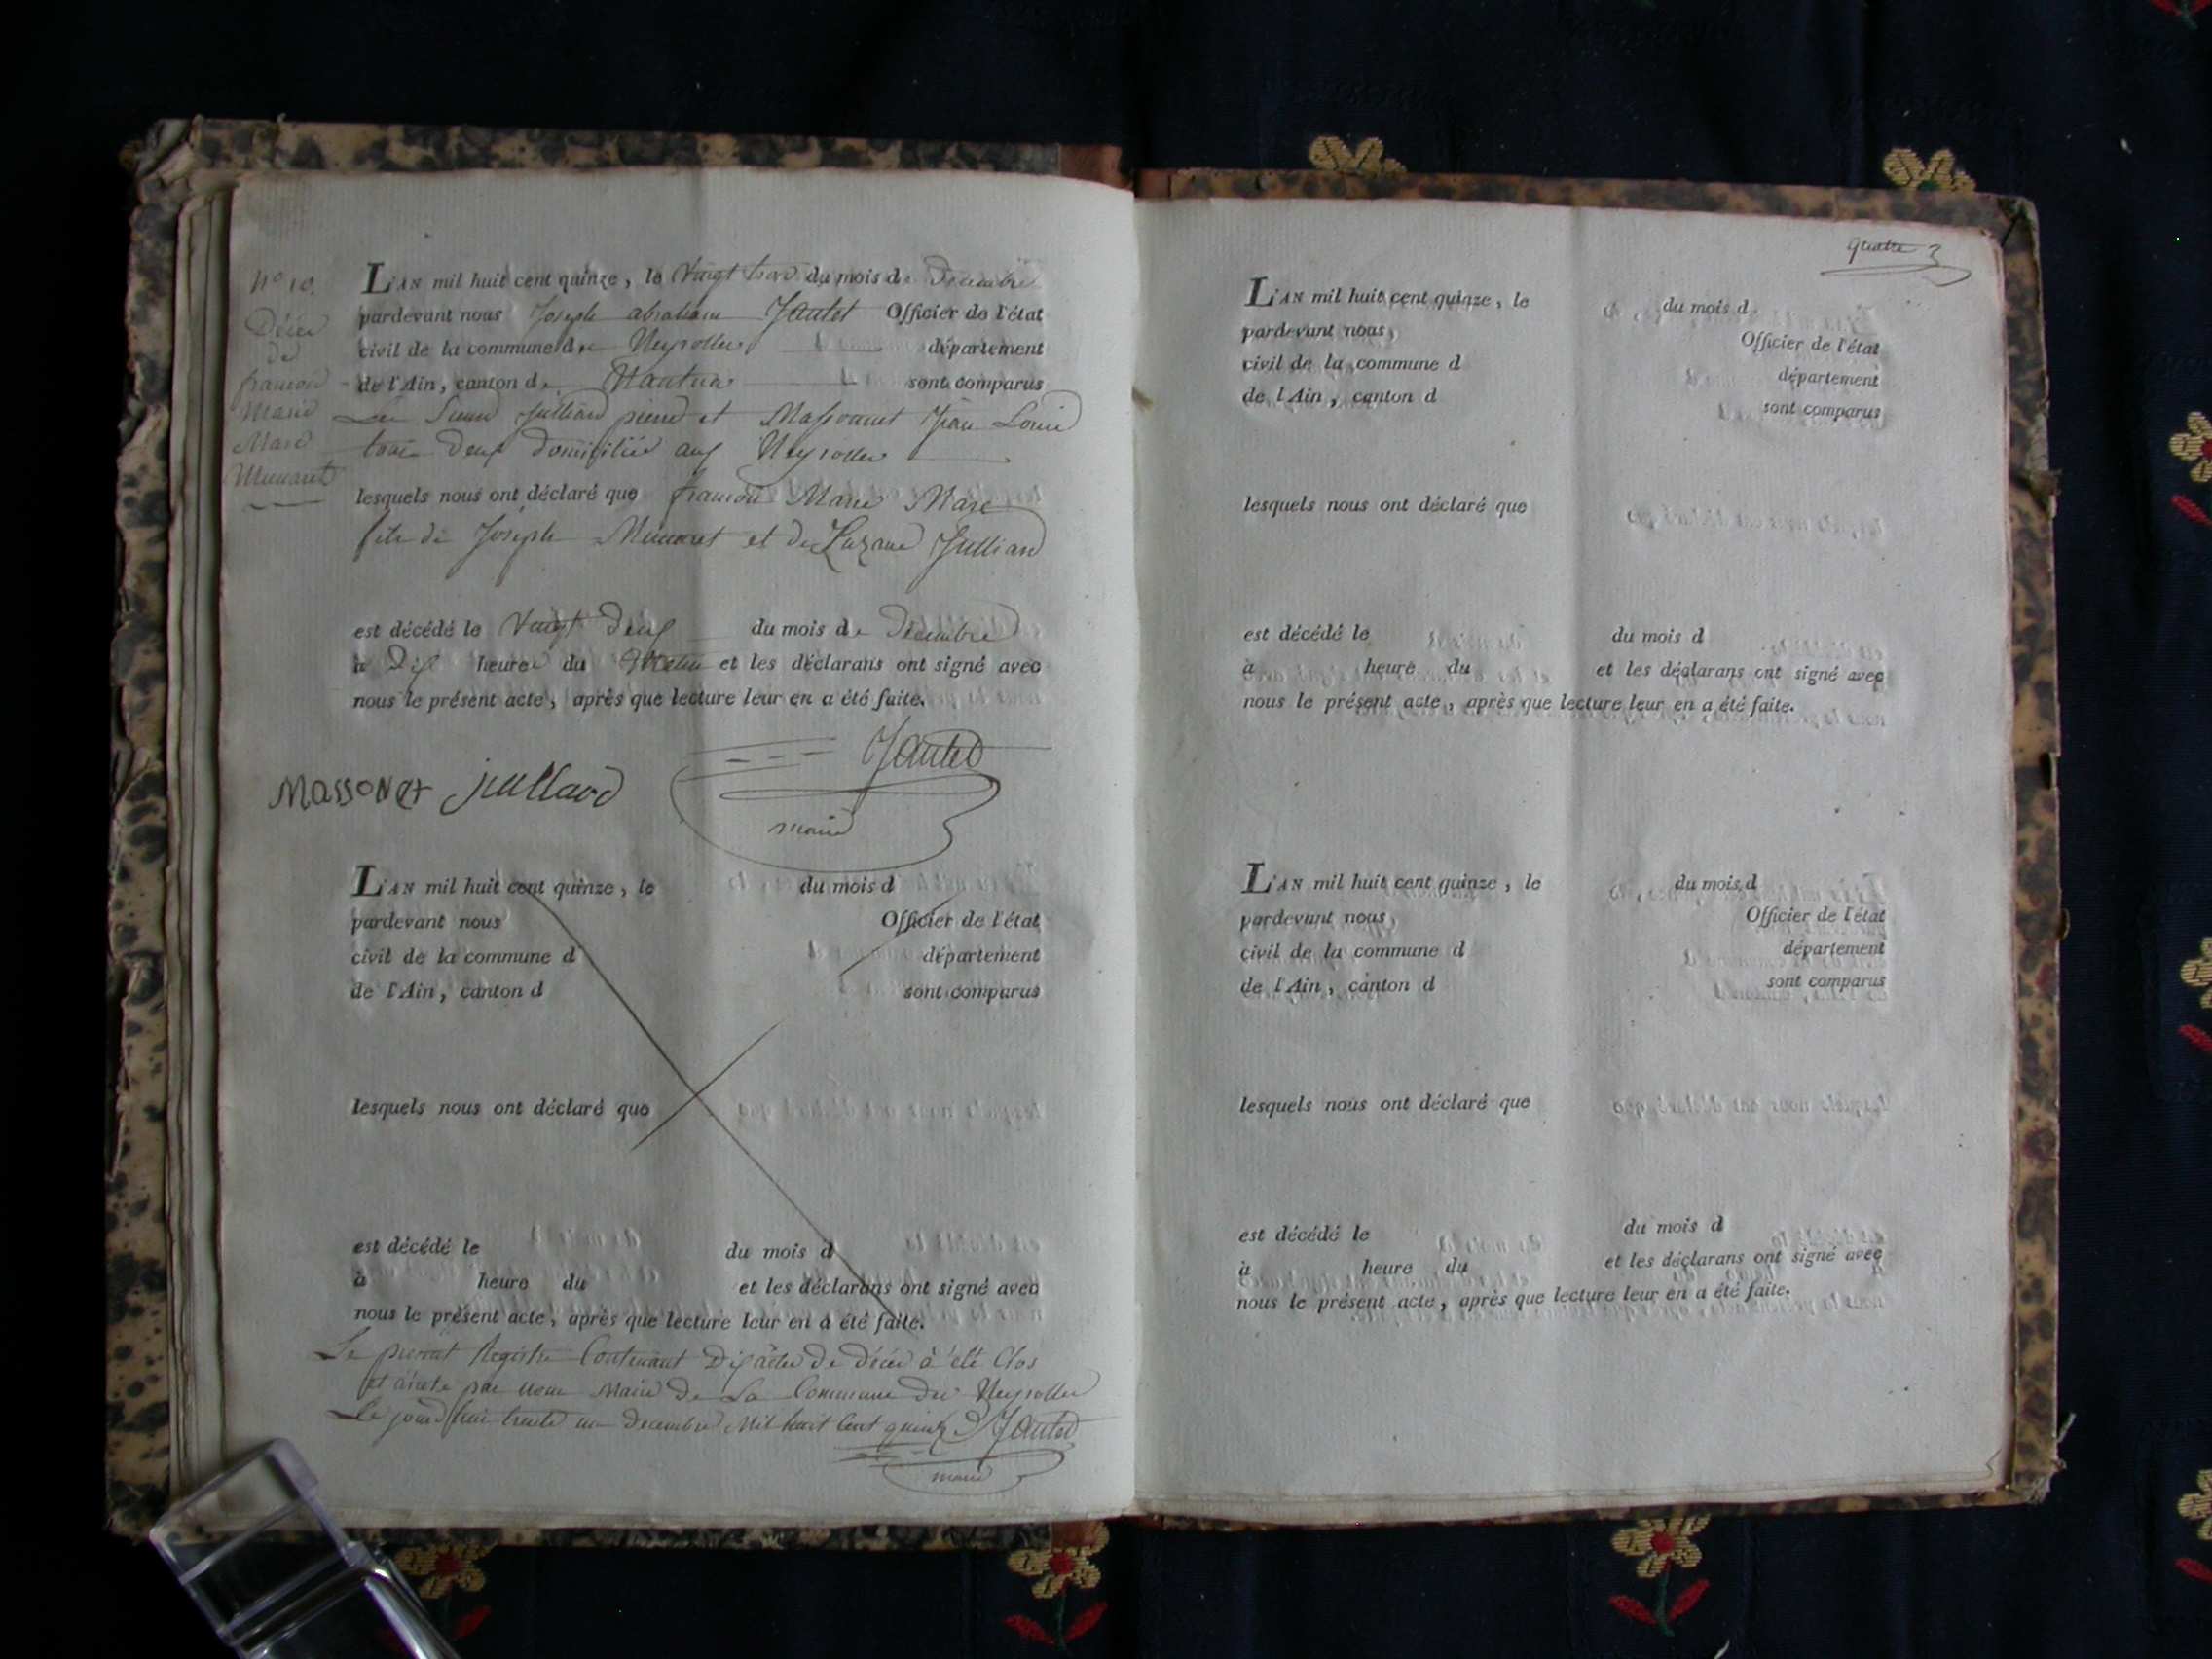 N° 10.
Décès
de
francois
Marie
Marc
Munaret
L'AN mil huit cent quinze, le Vingt trois du mois de Decembre
pardevant nous Joseph abraham Jantet Officier de l'état
civil de la commune des Neyrolles département
de l'Ain, canton de Nantua sont comparus
Les Sieurs Julliard pierre et Massonnet Jean Louis
tous deux domiciliés aux Neyrolles
lesquels nous ont déclaré que francois Marie Marc
fils de Joseph Munaret et de Suzanne Julliard
est décédé le Vingt deux du mois de Decembre
à Dix heures du Matin et les déclarans ont signé avec
nous le présent acte, après que lecture leur en a été faite.
MASSONet julliard Jantet
maire
L'AN mil huit cent quinze, le du mois d
pardevant nous Officier de l'état
civil de la commune d département
de l'Ain, canton d sont comparus
lesquels nous ont déclaré que
est décédé le du mois d
à heure du et les déclarans ont signé avec
nous le présent acte, après que lecture leur en a été faite.
Le present Registre Contenant Dix actes de décès à été Clos
et arreté par nous Maire de La Commune des Neyrolles
Le jourd'hui trente un decembre Mil huit Cent quinze Jantet
maire
quatre
L'AN mil huit cent quinze, le du mois d
pardevant nous, Officier de l'état
civil de la commune d département
de l'Ain, canton d sont comparus
lesquels nous ont déclaré que
est décédé le du mois d
à heure du et les déclarans ont signé avec
nous le présent acte, après que lecture leur en a été faite.
L'AN mil huit cent quinze, le du mois d
pardevant nous, Officier de l'état
civil de la commune d département
de l'Ain, canton d sont comparus
lesquels nous ont déclaré que
est décédé le du mois d
à heure du et les déclarans ont signé avec
nous le présent acte, après que lecture leur en a été faite.